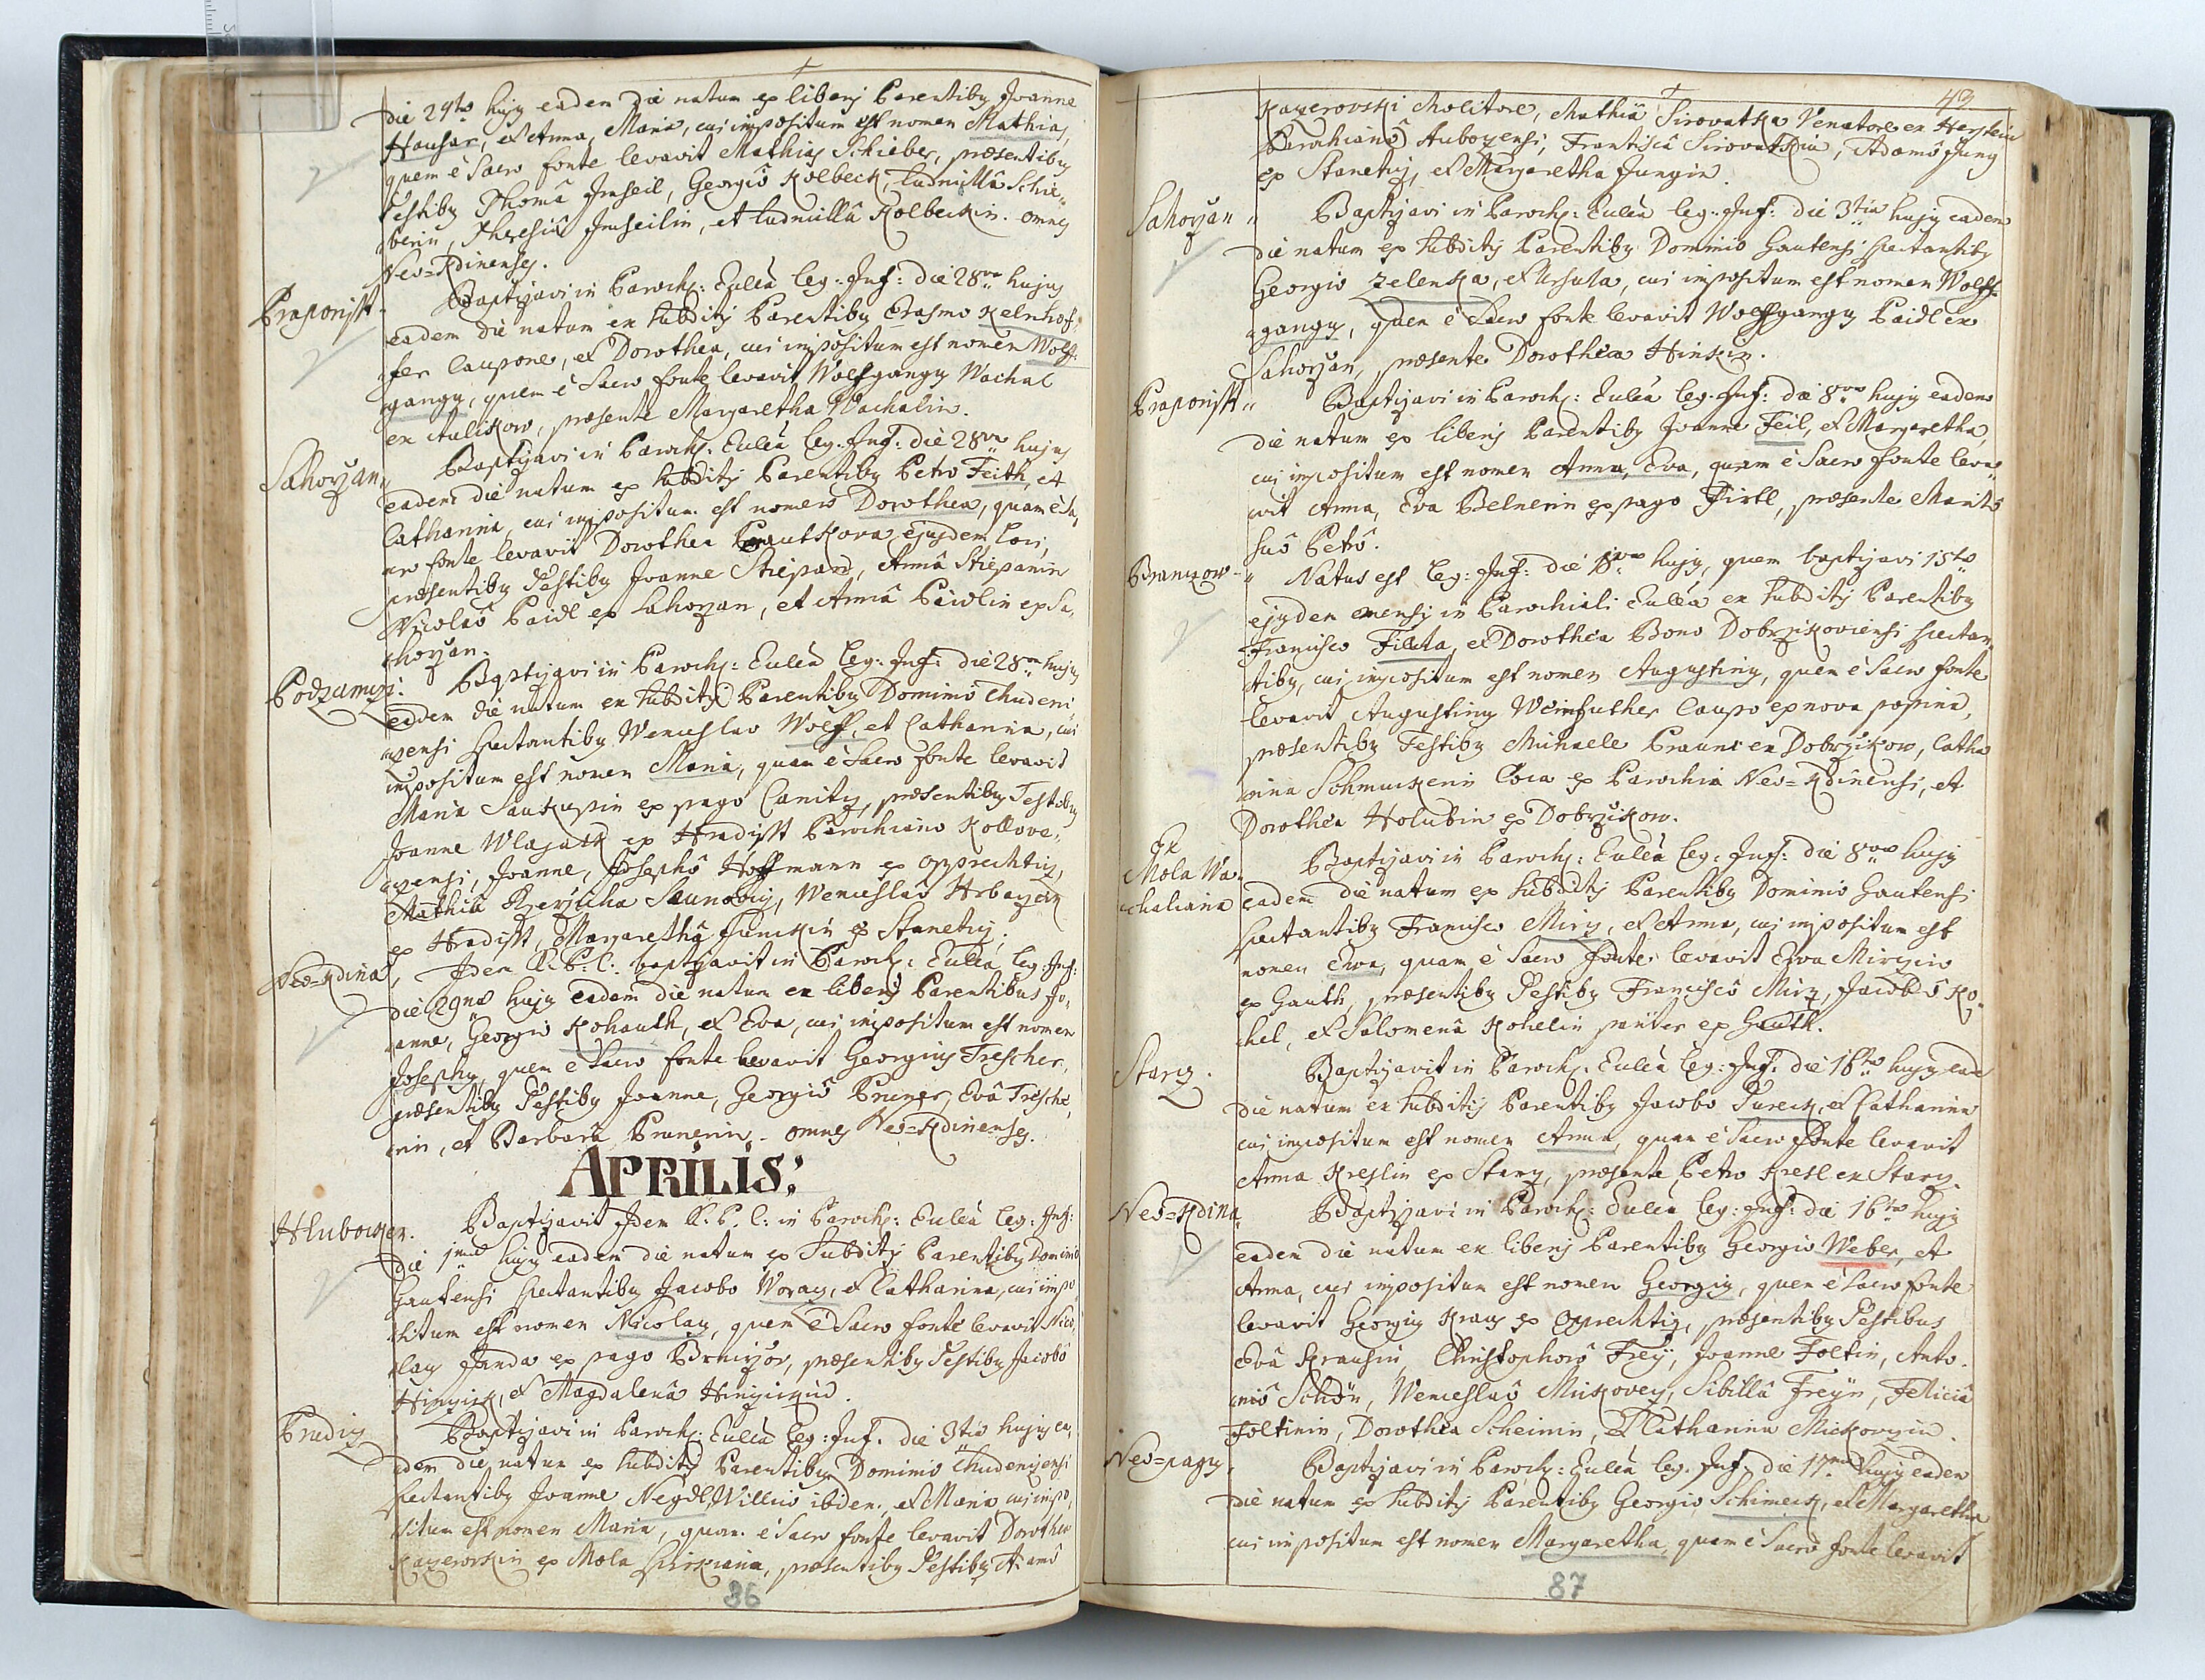 die 24to hujy eadem die natum ex liberj Parentiby Joanne
Hausar, et Anna, Maria, cui impositum est nomen Mathias,
quem è Sacro fonte levavit Mathias Schieber, præsentiby
Testiby Thomâ Imseil, Georgiô Kolbeck, Ludmillâ Schie„
berin, Theresiâ Imseilin, et Ludmillâ Kolbeckin. omnes
Neo=Kdinenses.
Praporisst. Baptizavi in Paroch: Eccâ leg: Inf: die 28va hujus
eadem die natum ex subditj Parentiby Erasmo Kelnhof„
fer Caupone, et Dorothea, cui impositum est nomen Wolff„
gangy, quem è Sacro fonte levavit Wolfgangy Wachal
ex Aulikow, præsente Margaretha Wachalin.
Sahorzan„ Baptizavi in Paroch: Eccâ leg: Inf: die 28va hujus
eadem die natum ex subditj Parentiby Petro Feith, et
Catharina, cui impositum est nomen Dorothea, quam è Sa„
cro fonte levavit Dorothea Prautkova ejusdem loci,
præsentiby Testiby Joanne Stiepano, Annâ Stiepanin
Nicolaô Paidl ex Sahorzan, et Annâ Paidlin ex Sa„
horzan.
Podzamczi. Baptizavi in Paroch: Eccâ leg: Inf: die 28va hujus
eadem die natum ex subditj Parentiby Dominio Chudeni„
czensi spectantiby Wenceslao Wolff, et Catharina, cui
impositum est nomen Maria, quam è Sacro fonte levavit
Maria Saukupin ex pago Canitz, præsentiby Testiby
Joanne Wlasack ex Hradisst Parochiano Kollove„
czensi, Joanne, Josephô Hoffmann ex Opprechtitz,
Mathiâ
ex Hradisst, Margarethâ Junckin ex Stanetitz.
Neo=Kdina, Idem A: P: C: baptizavit in Paroch: Eccâ leg: Inf:
die 29na hujy eadem die natum ex liberj Parentibus Jo„
anne, Georgio Kohauth, et Eva, cui impositum est nomen
Josephy, quem è Sacro fonte levavit Georgius Trescher,
præsentiby Testiby Joanne, Georgiô Pruner, Evâ Tresche„
rin, et Barbarâ Prunerin. omnes Neo=Kdinenses.
APRILIS:
Hluboczer. Baptizavit Idem A: P: C: in Paroch: Eccâ leg: Inf:
die 1ma hujy eadem die natum ex Subditj Parentiby Dominio
Gautensi spectantiby Jacobo Woracz, et Catharina, cui impo„
situm est nomen Nicolay, quem è Sacro fonte levavit Nico„
lay Janda ex pago præsentiby Testiby Jacobô
et Magdalenâ
Pruditz Baptizavi in Paroch: Eccâ leg: Inf: die 3tia hujy ea„
dem die natum ex subditj Parentiby Dominio Chudeniczensi
spectantiby Joanne Negdl, Villico ibidem, et Maria, cui impo„
situm est nomen Maria, quam è Sacro fonte levavit Dorothea
Kayerovskin ex Mola præsentiby Testiby Adamô
86
49
Kayerovski Molitore, Mathiâ Sirovatka Venatore ex Herstein
Parochianô Franciscâ Sirovatkin, Adamô Jung
ex Stanetitz, et Margaretha Jungin.
Sahorzan „ Baptizavi in Paroch: Eccâ leg: Inf: die 3tia hujy eadem
die natum ex subditj Parentiby Dominio Gautensi spectantiby
Georgio Zelenka, et Ursula, cui impositum est nomen Wolff„
gangy, quem è Sacro fonte levavit Wolffgangy Paidl ex
Sahorzan, præsente Dorothea
Praporisst „ Baptizavi in Paroch: Eccâ leg: Inf: die 8va hujy eadem
die natum ex liberj Parentiby Joanne Feil, et Margaretha,
cui impositum est nomen Anna, Eva, quam è Sacro fonte leva„
vit Anna, Eva Belnerin ex pago Fürtl, præsente Maritô
suô Petrô.
Natus est leg: Inf: die hujy, quem baptizavi 15to
ejusdem mensis in Parochiali Eccâ ex subditj Parentiby
Francisco Filota, et Dorothea Bono Dobrzikoviensi spectan„
tiby, cui impositum est nomen Augustiny, quem è Sacro fonte
levavit Augustiny Weinfuther Caupo ex nova popina,
præsentiby Testiby Michaele Praunn ex Dobrzikow, Catha„
rina Schmuckerin ex Parochia Neo=Kdinensi, et
Dorothea Holubin ex Dobrzikow.
Ex
Mola Wa„ Baptizavi in Paroch: Eccâ leg: Inf: die 8va hujy
chaliana eadem die natum ex subditj Parentiby Dominio Gautensi
spectantiby Francisco Mirz, et Anna, cui impositum est
nomen Eva, quam è Sacro fonte levavit Eva Mirzin
ex Gauth, præsentiby Testiby Franciscô Mirz, Jacobô Ko„
hel, et Salomenâ Kohelin pariter ex Gauth.
Starz. Baptizavit in Paroch: Eccâ leg: Inf: die 16ta hujy ead
die natum ex subditj Parentiby Jacobo Tureck, et Catharina
cui impositum est nomen Anna, quam è Sacro fonte levavit
Anna Kreslin ex Starz, præsente Petro Kresl ex Starz.
Neo=Kdina„ Baptizavi in Paroch: Eccâ leg: Inf: die 16ta hujy
eadem die natum ex liberj Parentiby Georgio Weber, et
Anna, cui impositum est nomen Georgiy, quem è Sacro fonte
levavit Georgiy Kraus ex Opprechtitz, præsentiby Testibus
Evâ Krausin, Christophorô Freÿ, Joanne Foltin, Anto„
niô Schön, Wenceslaô Mickovetz, Sibillâ Freÿin, Feliciâ
Foltinin, Dorothea Scheinin, et Catharina Mickovzin.
Neo=pagy„ Baptizavi in Paroch: Eccâ leg: Inf: die 17ma hujy eadem
die natum ex subditj Parentiby Georgio Schimeck, et Margaretha
cui impositum est nomen Margaretha, quam è Sacro fonte levavit
87